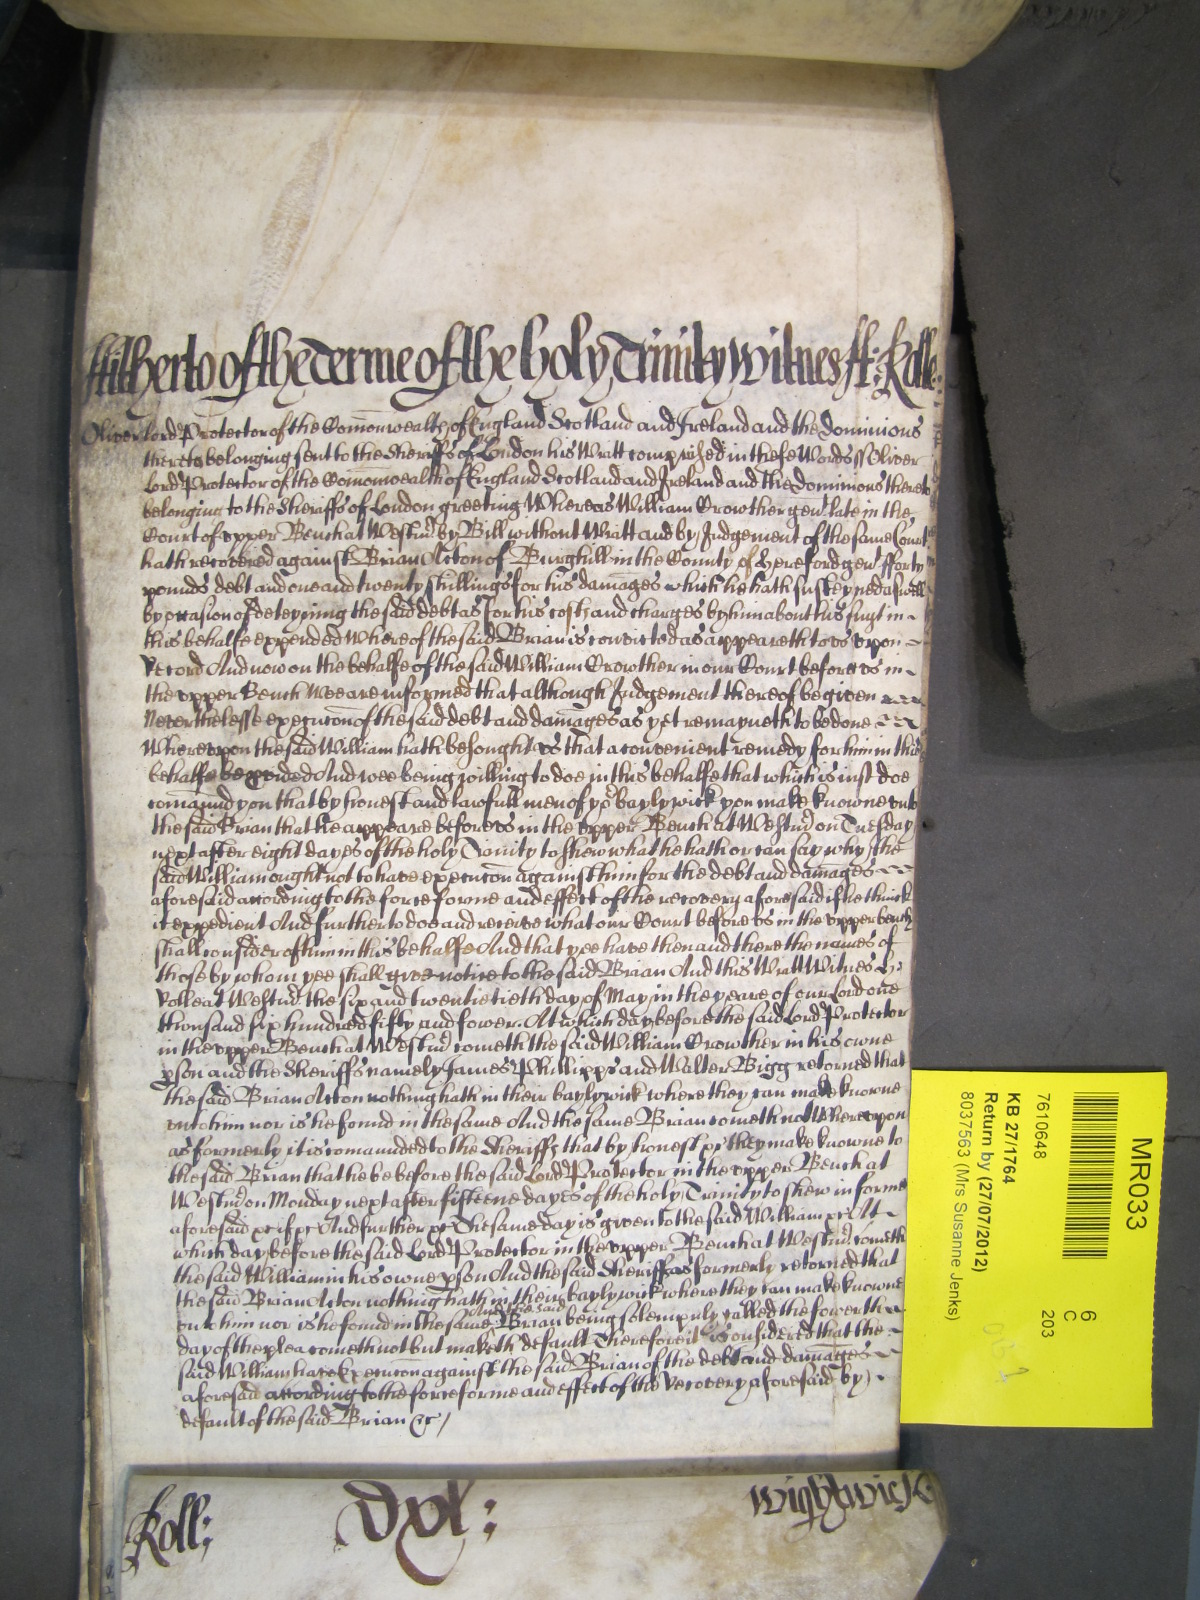 Hitherto of the Terme of the holy Trinity Witnes H: Rolle:
Oliver Lord Protector of the Comonwealth of England Scotland and Ireland and the Dominions
thereto belonging sent to the Sheriffs of London his Writt comprised in these Words ss Oliver
Lord Protector of the Comonwealth of England Scotland and Ireland and the Dominions thereto
belonging to the Sheriffs of London greeting Whereas William Crowther gen late in the
Court of upper Bench at Westmr by Bill without Writt and by Judgement of the same Court
hath recovered against Brian Acton of Burghill in the County of Hereford gen fforty
pounds debt and one and twenty shillings for his damages which he hath susteyned aswell
by occasion of deteyning the said debt as for his costs and charges by him about his suyt in
this behalfe expended Whereof the said Brian is convicted as appeareth to us upon
Record And now on the behalfe of the said William Crowther in our Court before us in
the upper Bench Wee are informed that although Judgement thereof be given
Neverthelesse execucon of the said debt and damages as yet remayneth to be done
Whereupon the said William hath besought us that a convenient remedy for him in this
behalfe be pvided And wee being willing to doe in this behalfe that which is iust doe
comaund you that by honest and lawfull men of yor baylywick you make knowne unto
the said Brian that he appeare before us in the upper Bench at Westmr on Tuesday
next after eight dayes of the holy Trinity to shew what he hath or can say why the
said William ought not to have execucon against him for the debt and damages
aforesaid according to the force forme and effect of the recovery aforesaid if he thinck
it expedient And further to doe and receive what our Court before us in the upper bench
shall consider of him in this behalfe And that yee have then and there the names of
those by whom yee shall give notice to the said Brian And this Writt Witnes H:
Rolle at Westmr the six and twentietieth day of May in the yeare of our Lord one
thousand six hundred fifty and fower. At which day before the said Lord Protector
in the upper Bench at Westmr cometh the said William Crowther in his owne
pson and the Sheriffs namely James Phillipps and Walter Bigg retorned that
the said Brian Acton nothing hath in their baylywick where they can make knowne
unto him nor is he found in the same And the same Brian cometh not Whereupon
as formerly it is comaunded to the Sheriffs that by honest &c they make knowne to
the said Brian that he be before the said Lord Protector in the upper Bench at
Westmr on Monday next after fifteene dayes of the holy Trinity to shew in forme
aforesaid &c if &c And further &c The same day is given to the said William &c At
which day before the said Lord Protector in the upper Bench at Westmr cometh
the said William in his owne pson And the said Sheriffs as formerly retorned that
the said Brian Acton nothing hath in their baylywick where they can make knowne
unto him nor is he found in the same And the said Brian being solempnly called the fowerth
day of the plea cometh not but maketh default Therefore it is considered that the
said William have Execucon against the said Brian of the debt and damages
aforesaid according to the force forme and effect of the Recovery aforesaid by
default of the said Brian &c
Roll; dxl; Wightwick
MR033
6
C
203
7610648
KB 27/1764
Return by (27/07/2012)
8037563 (Mrs Susanne Jenks)